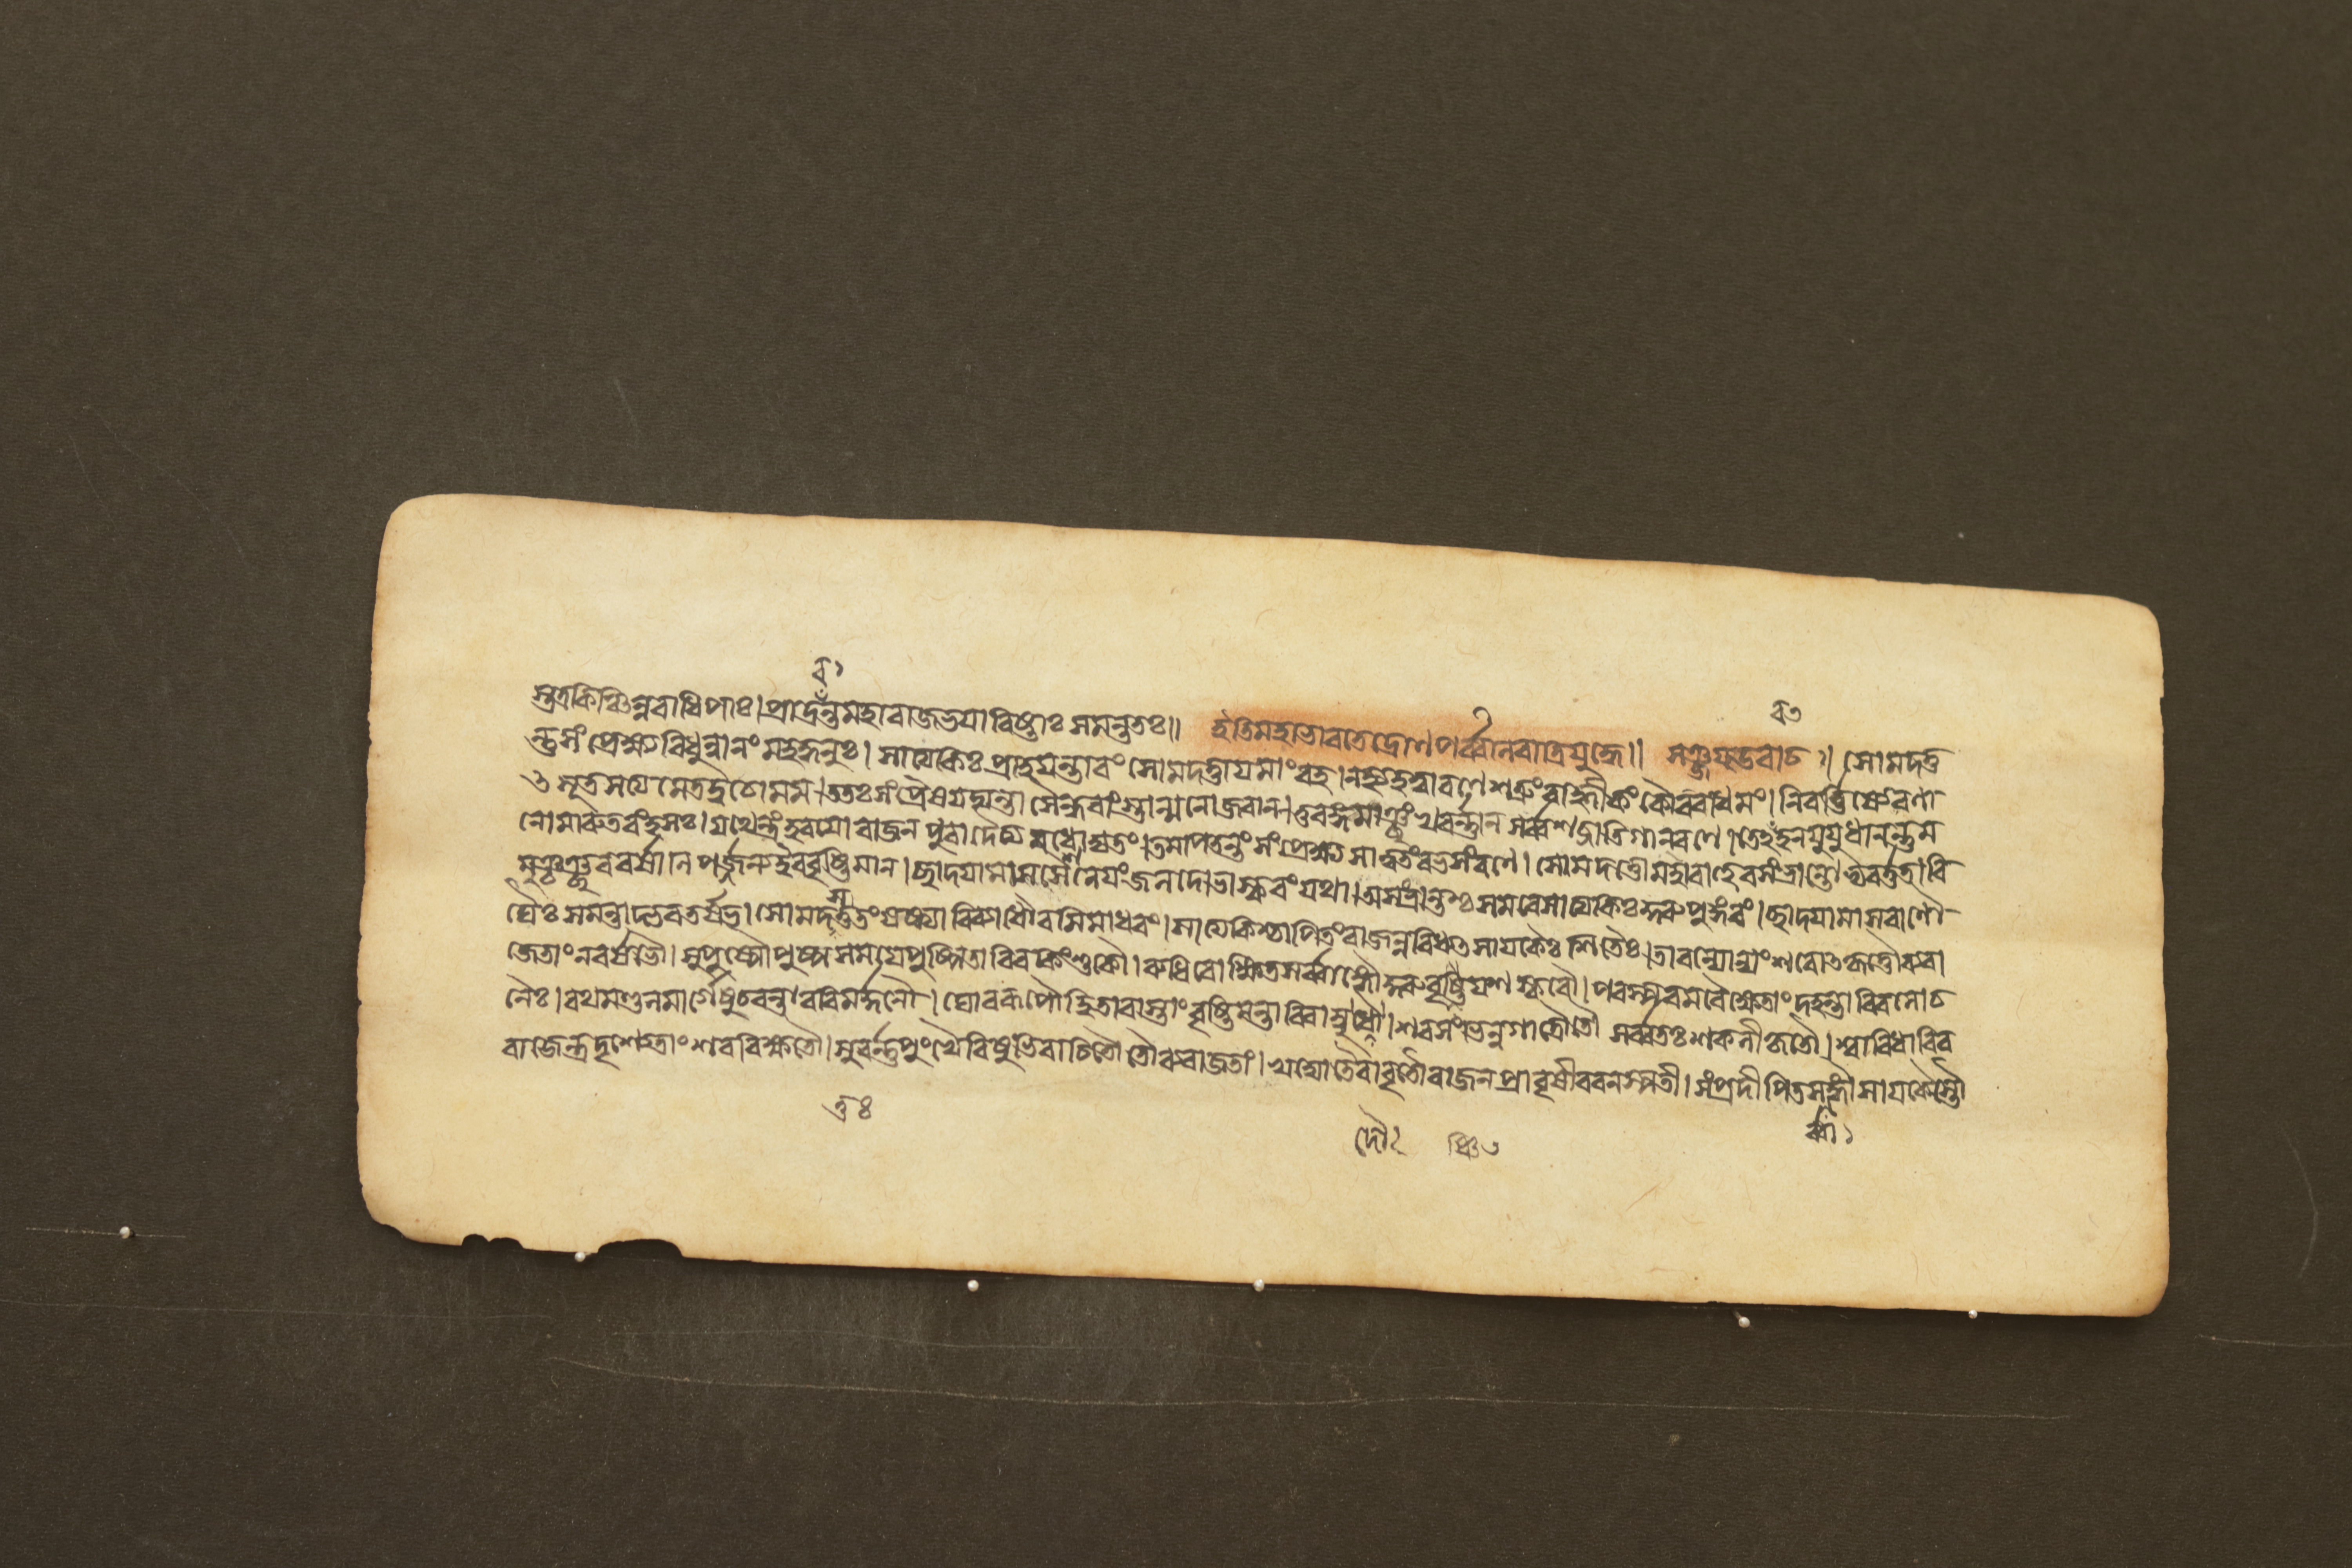 স্তত্র কিঞ্চিন্নরাধিপাঃ। প্রাদ্রবঁন্ত মহারাজ ভয়াবিষ্টাঃ সমন্ততঃ॥ ইতি মহাভারতে দ্রোণপর্ব্বনি রাত্রিযুদ্ধে॥ সঞ্জয় উবাচ॥ সোমদত্ত
ন্তু সংপ্রেক্ষ্য বিধুন্বানং মহদ্ধনুঃ। সাত্যকিঃ প্রাহ যন্তারং সোমদত্তায় মাং বহ। নহ্যহত্বা রণে শত্রুং বাহ্লীকং কৌরবাধমং। নিবর্ত্তিষ্যে রণা
ৎ সূত সত্যমেতদ্বচো মম। ততঃ সংপ্রৈষয়দ্যন্তা সৈন্ধবাংস্তান্মনোজবান। তুরঙ্গমাঞ্ছংখবর্ন্নান সর্ব্বশব্দাতিগান রণে। তেঽবহন যুযুধানন্তু ম
নোমারুতরংহসঃ। যথেন্দ্রং হরয়ো রাজন পুরা দৈত্যবধোদ্যতং। তমাপতন্তং সংপ্রেক্ষ্য সাত্বতং রভসং রণে। সোমদত্তো মহাবাহুরসংভ্রান্তোভ্যবর্ত্তত। বি
মুঞ্চঞ্ছরবর্ষানি পর্জ্জন্য ইব বৃষ্টিমান। ছাদয়ামাস সৈনেয়ং জলদো ভাস্করং যথা। অসংভ্রান্তশ্চ সমরে সাত্যকিঃ কুরুপুঙ্গবং। ছাদয়ামাস বাণৌ
ঘৈঃ সমন্তাদ্ভরতর্ষভ। সোমদত্তস্তু তং ষষ্ট্যা বিব্যাধোরসি মাধবং। সাত্যকিশ্চাপি তং রাজন্নবিধ্যত সায়কৈঃ শিতৈঃ। তাবন্যোন্যং শরৈঃ কৃত্তৌ ব্যরা
জেতাং নরর্ষভৌ। সুপুষ্পৌ পুষ্পসময়ে পুষ্পিতাবিব কিংশুকৌ। রুধিরোক্ষিতসর্ব্বাঙ্গৌ কুরুবৃষ্ণিযশস্করৌ। পরস্পরমবেক্ষেতাং দহন্তাবিব লোচ
নৈঃ। রথমণ্ডলমার্গেষু চরন্তাবরিমর্দ্দনৌ। ঘোররূপৌ হি তাবাস্তাং বৃষ্টিমন্তাবিবাম্বুদৌ। শরসংভিন্নগাত্রৌ তৌ সর্ব্বতঃ শকলীকৃতৌ। শ্বাবিধাবিব
রাজেন্দ্র দৃশ্যেতাং শরবিক্ষতৌ। সুবর্ন্নপুংখৈরিষুভিরাচিতৌ তৌ ব্যরাজতাং। খদ্যোতৈরাবৃতৌ রাজন প্রাবৃষীব বনস্পতী। সংপ্রদীপিতসর্ব্বাঙ্গৌ সায়কৈস্তৌ